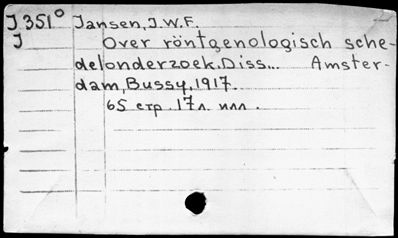 J 351° Jansen, J.W.F.
J Over röntgenologisch sche-
delonderzoek. Diss... Amster-
dam, Bussy, 1917.
65 стр. 17 л. илл.